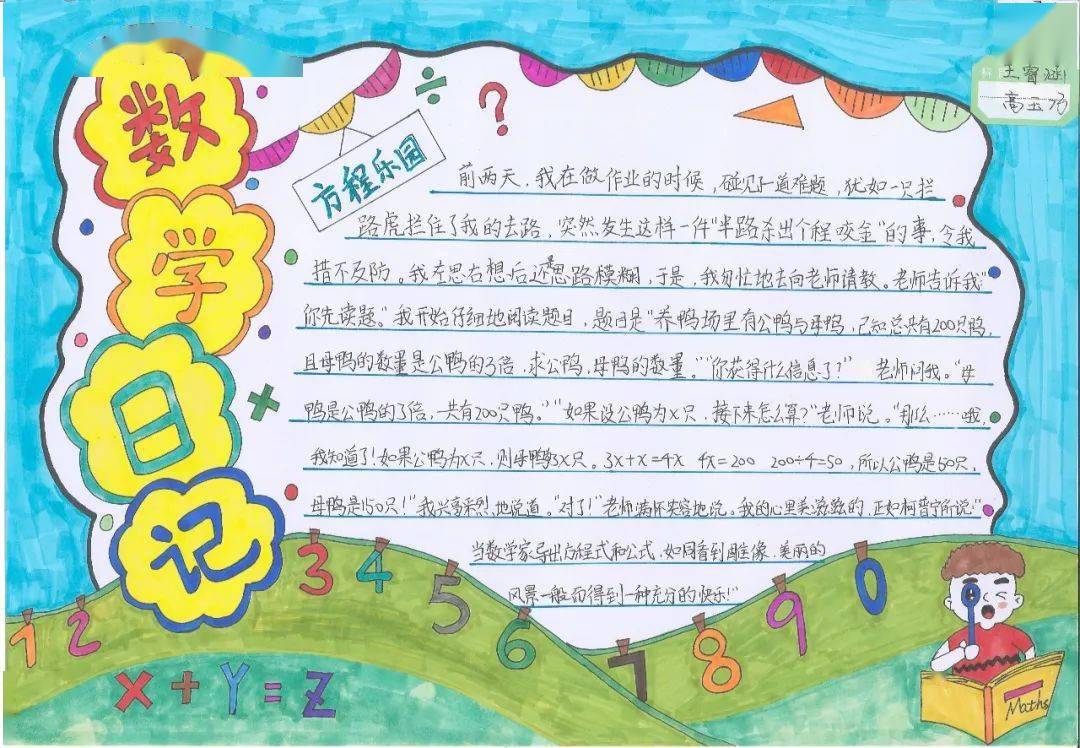 数学日记
王睿涵
方程乐园
前两天,我在做作业的时候,碰见了一道难题,犹如一只拦
路虎拦住了我的去路,突然发生这样一件"半路杀出个程咬金"的事,令我
措不及防。我左思右想后还是思路模糊,于是,我匆忙地去向老师请教。老师告诉我:"
你先读题。"我开始仔细地阅读题目,题目是"养鸭场里有公鸭与母鸭,已知总共有200只鸭,
且母鸭的数量是公鸭的3倍,求公鸭,母鸭的数量。""你获得什么信息了?" 老师问我。"母
鸭是公鸭的3倍,共有200只鸭。""如果设公鸭为x只,接下来怎么算?"老师说。"那么……哦,
我知道了!如果公鸭为x只,则母鸭3x只。3x+x=4x 4x=200 200÷4=50,所以公鸭是50只,
母鸭是150只!"我兴高采烈地说道。"对了!"老师满怀笑容地说。我的心里美滋滋的,正如柯普宁所说:"
当数学家导出方程式和公式,如同看到雕像、美丽的
风景一般而得到一种充分的快乐!"
÷
?
×
1 2 3 4 5 6 7 8 9 0
X + Y = Z
Maths